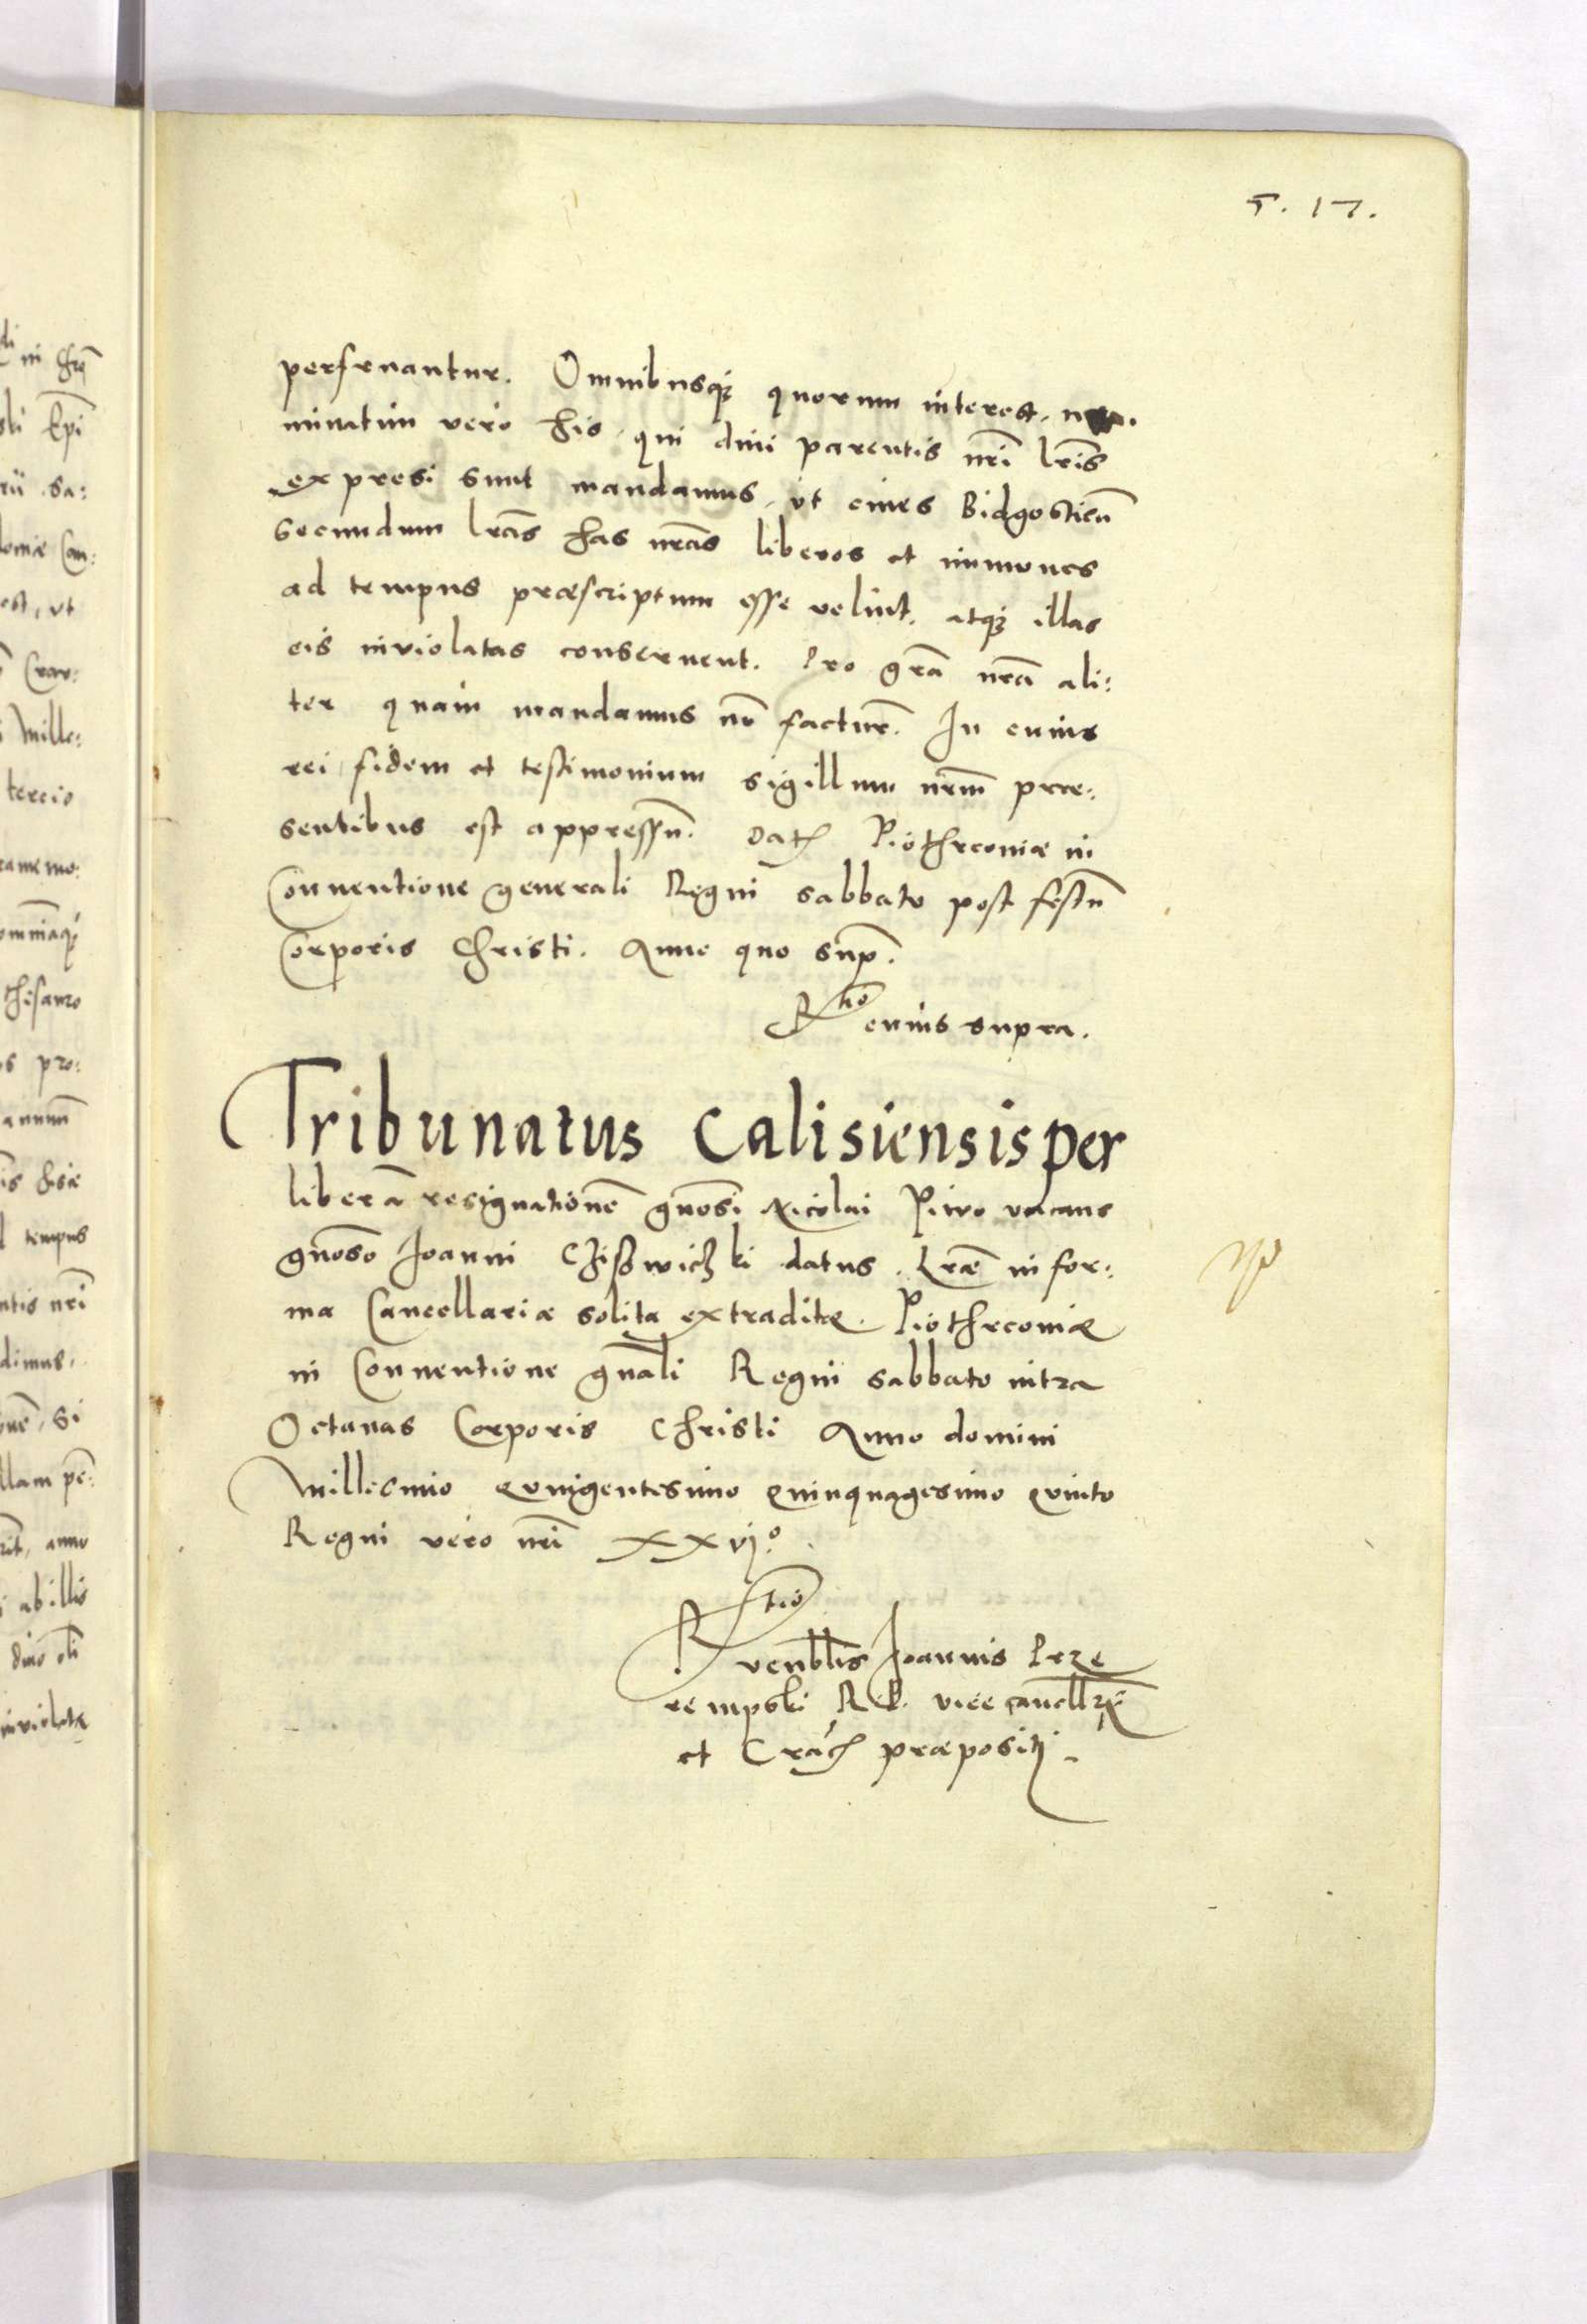 5. 17.
perfruantur. Omnibusq; quorum interest, no.
minatim vero his, qui divi parentis nri lris
expresi sunt mandamus, ut cives Bidgosticen
secundum lras has nras liberos et immunes
ad tempus præscriptum esse velint, atq; illas
eis inviolatas conservent. Pro gra nra ali:
ter quam mandamus no factur. In cuius
rei fidem et testimonium sigillum nrm præ:
sentibus est appressu. Dat Piothrcoviæ in
Conventione generali Regni sabbato post festu
Corporis Christi. Anno quo sup.
Rtio cuius supra.
Tribunatus Calisiensis per
libera resignatione gnosi Nicolai Piwo vacans
gnoso Joanni datus. Lræ in for:
ma Cancellariæ solita extraditæ. Piothrcoviæ
in Conventione gnali Regni sabbato intra
Octavas Corporis Christi Anno domini
Millesimo quingentesimo quinquagesimo quinto
Regni vero nri XXVI.o
Rtio
venblis Joannis Prze
rempski R. P. vicecancellr
et Crac præpositi.